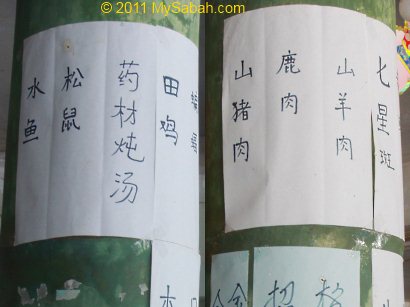 © 2011 MySabah.com
水鱼
松鼠
药材炖汤
田鸡
山猪肉
鹿肉
山羊肉
七星斑